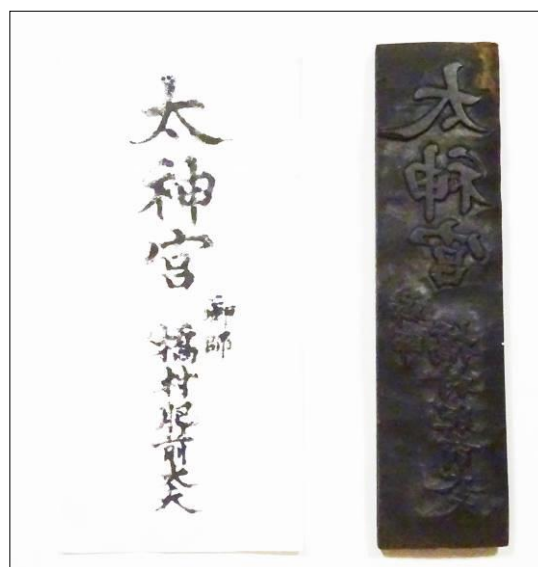 太神宮
御師
橋村肥前大夫